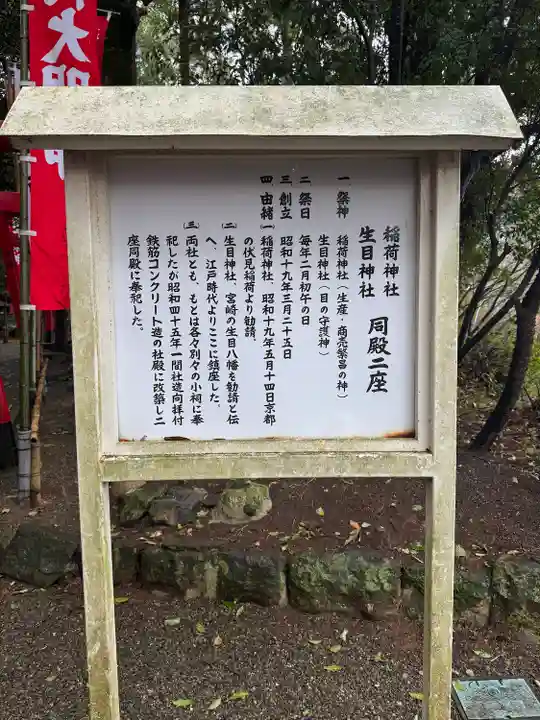 稲荷神社
生目神社
同殿二座
一 祭神 稲荷神社(生産・商売繁昌の神)
生目神社(目の守護神)
二 祭日 毎年二月初午の日
三 創立 昭和十九年三月二十五日
四 由緒(一)稲荷神社、昭和十九年五月十四日京都
の伏見稲荷より勧請。
(二)生目神社、宮崎の生目八幡を勧請と伝
へ、江戸時代よりここに鎮座した。
(三)両社とも、もとは各々別々の小祠に奉
祀したが昭和四十五年一間社造向拝付
鉄筋コンクリート造の社殿に改築し二
座同殿に奉祀した。
大明神